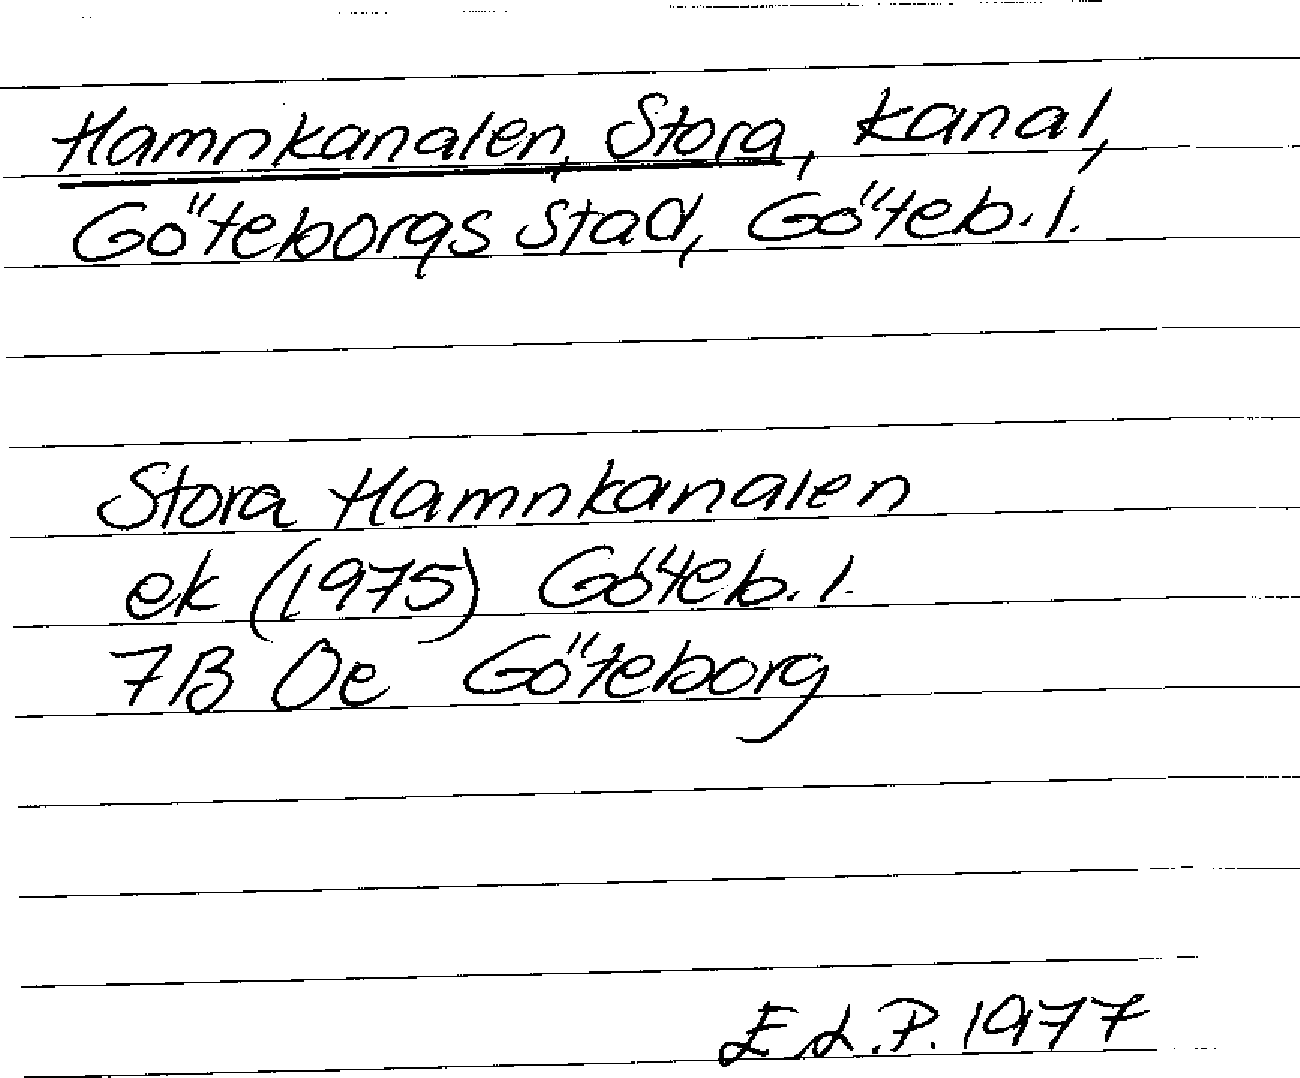 Hamnkanalen, Stora, kanal,
Göteborgs stad, Göteb. l.
Stora Hamnkanalen
ek (1975) Göteb. l.
7B Oe Göteborg
E.L.P. 1977